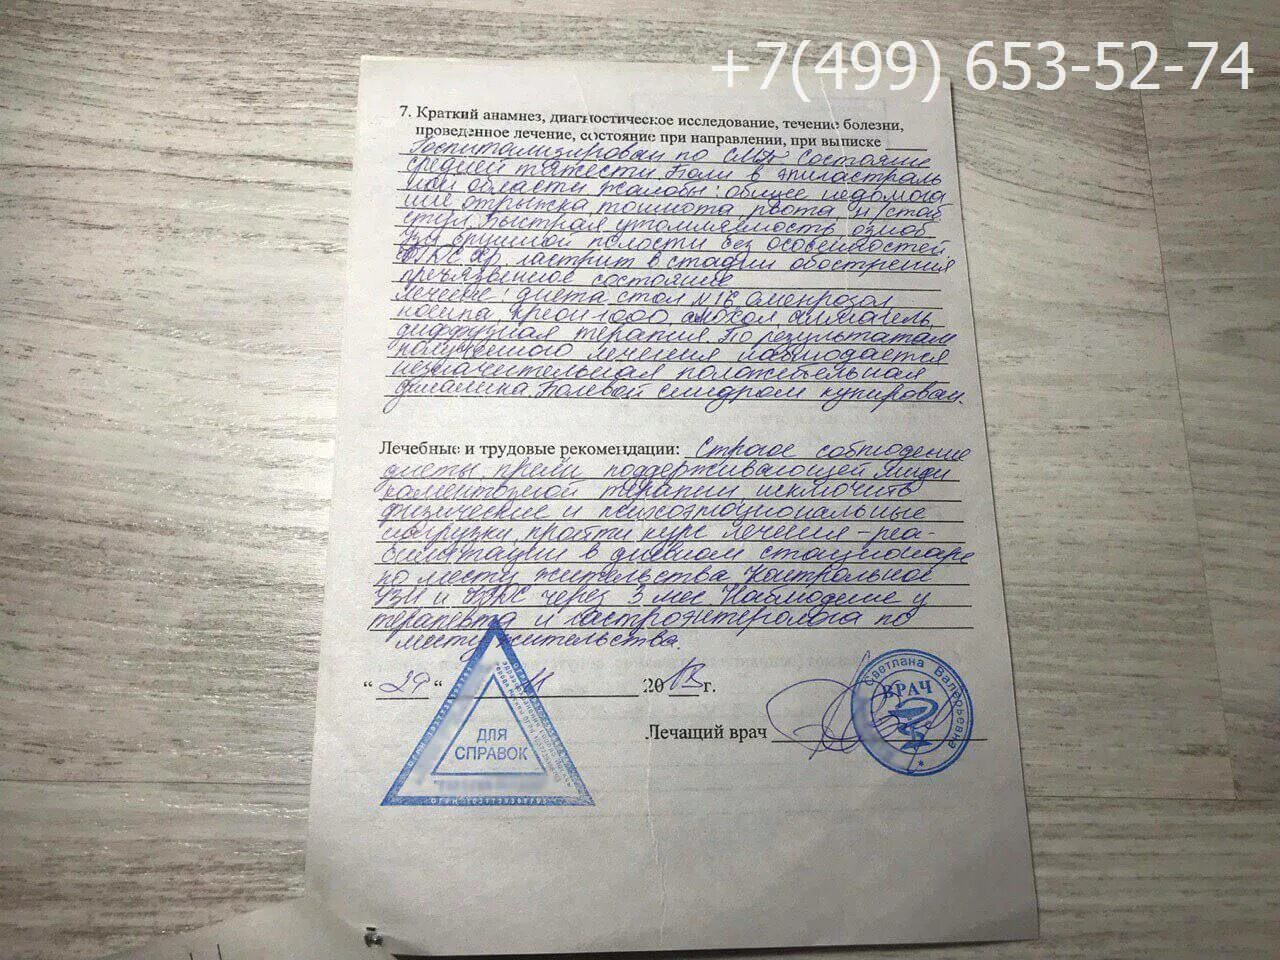 +7(499) 653-52-74
7. Краткий анамнез, диагностическое исследование, течение болезни,
проведенное лечение, состояние при направлении, при выписке
Госпитализирован по СМП Состояние
средней тяжести. Боли в эпигастраль
ной области жалобы: общее недомога
ние отрыжка тошнота, рвота, н/стаб
стул. Быстрая утомляемость озноб
УЗИ брюшной полости без особенностей.
ФГДС Хр. гастрит в стадии обострения
предъязвенное состояние
лечение: диета стол №1Б омепрозол
ношпа, креон 1000 алохол алмагель,
диффузная терапия. По результатам
полученного лечения наблюдается
незначительная положительная
динамика. Болевой синдром купирован.
Лечебные и трудовые рекомендации: Строгое соблюдение
диеты, прием поддерживающей меди
каментозной терапии, исключить
физические и психоэмоциональные
нагрузки, пройти курс лечения-реа-
билитации в дневном стационаре
по месту жительства Контрольное
УЗИ и ФГДС через 3 мес Наблюдение у
терапевта и гастроэнтеролога по
месту жительства.
“ 29 “ 11 20 г.
Лечащий врач
Светлана Валерьевна
ВРАЧ
ДЛЯ
СПРАВОК